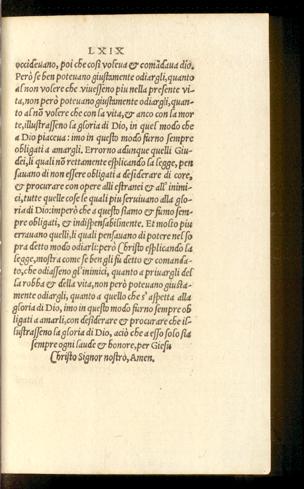 LXIX
occideuano, poi che così voleua & comãdaua dio.
Però se ben poteuano giustamente odiargli, quanto
al non volere che viuesseno piu nella presente vi-
ta, non però poteuano giustamente odiargli, quan-
to al nõ volere che con la vita, & anco con la mor
te, illustrasseno la gloria di Dio, in quel modo che
a Dio piaceua: imo in questo modo furno sempre
obligati a amargli. Errorno adunque quelli Giu-
dei, li quali nõ rettamente esplicando la legge, pen
sauano di non essere obligati a desiderare di core,
& procurare con opere alli estranei & all' inimi-
ci, tutte quelle cose le quali piu seruiuano alla glo-
ria di Dio: imperò che a questo siamo & fumo sem-
pre obligati, & indispensabilmente. Et molto piu
errauano quelli, li quali pensauano di potere nel so
pra detto modo odiarli: però Christo esplicando la
legge, mostra come se ben gli fu detto & comanda-
to, che odiasseno gl'inimici, quanto a priuargli del
la robba & della vita, non però poteuano giusta-
mente odiargli, quanto a quello che s'aspetta alla
gloria di Dio, imo in questo modo furno sempre ob
ligati a amarli, con desiderare & procurare che il-
lustrasseno la gloria di Dio. aciò che a esso solo sia
sempre ogni laude & honore, per Giesu
Christo Signor nostrò, Amen.